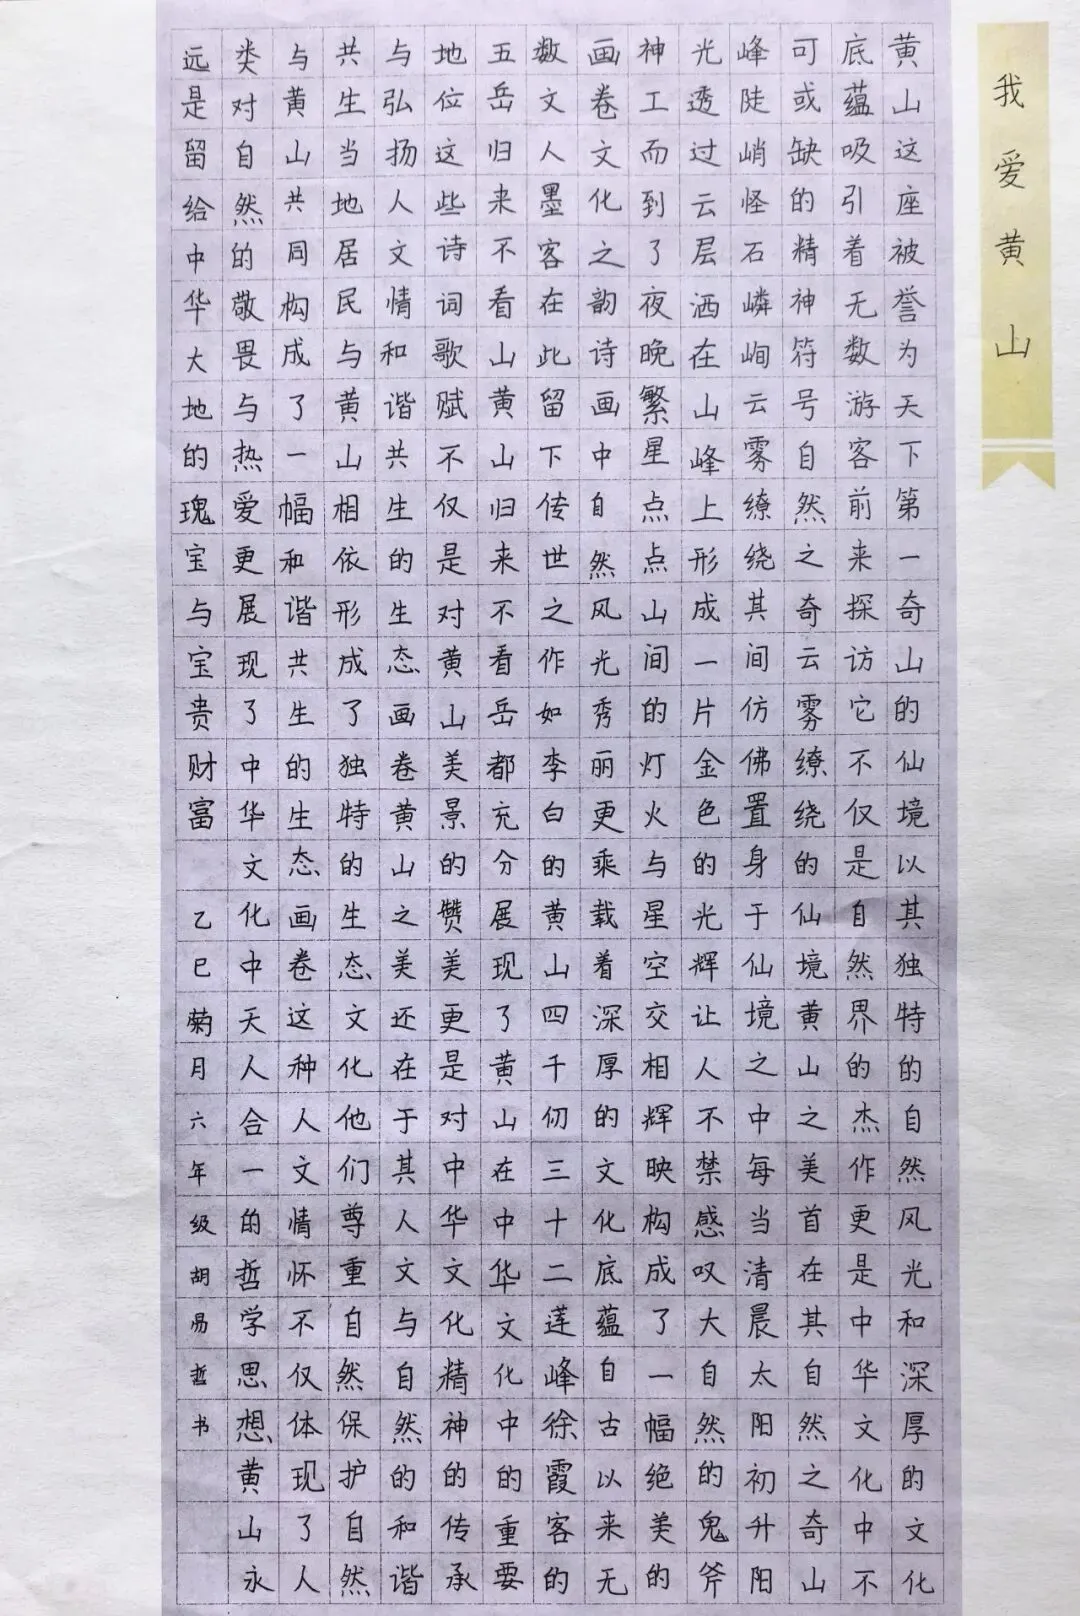 我爱黄山
黄山这座被誉为天下第一奇山的仙境以其独特的自然风光和深厚的文化
底蕴吸引着无数游客前来探访它不仅是自然界的杰作更是中华文化中不
可或缺的精神符号自然之奇云雾缭绕的仙境黄山之美首在其自然之奇山
峰陡峭怪石嶙峋云雾缭绕其间仿佛置身于仙境之中每当清晨太阳初升阳
光透过云层洒在山峰上形成一片金色的光辉让人不禁感叹大自然的鬼斧
神工而到了夜晚繁星点点山间的灯火与星空交相辉映构成了一幅绝美的
画卷文化之韵诗画中自然风光秀丽更乘载着深厚的文化底蕴自古以来无
数文人墨客在此留下传世之作如李白的黄山四千仞三十二莲峰徐霞客的
五岳归来不看山黄山归来不看岳都充分展现了黄山在中华文化中的重要
地位这些诗词歌赋不仅是对黄山美景的赞美更是对中华文化精神的传承
与弘扬人文情和谐共生的生态画卷黄山之美还在于其人文与自然的和谐
共生当地居民与黄山相依形成了独特的生态文化他们尊重自然保护自然
与黄山共同构成了一幅和谐共生的生态画卷这种人文情怀不仅体现了人
类对自然的敬畏与热爱更展现了中华文化中天人合一的哲学思想黄山永
远是留给中华大地的瑰宝与宝贵财富 乙巳菊月六年级胡易哲书